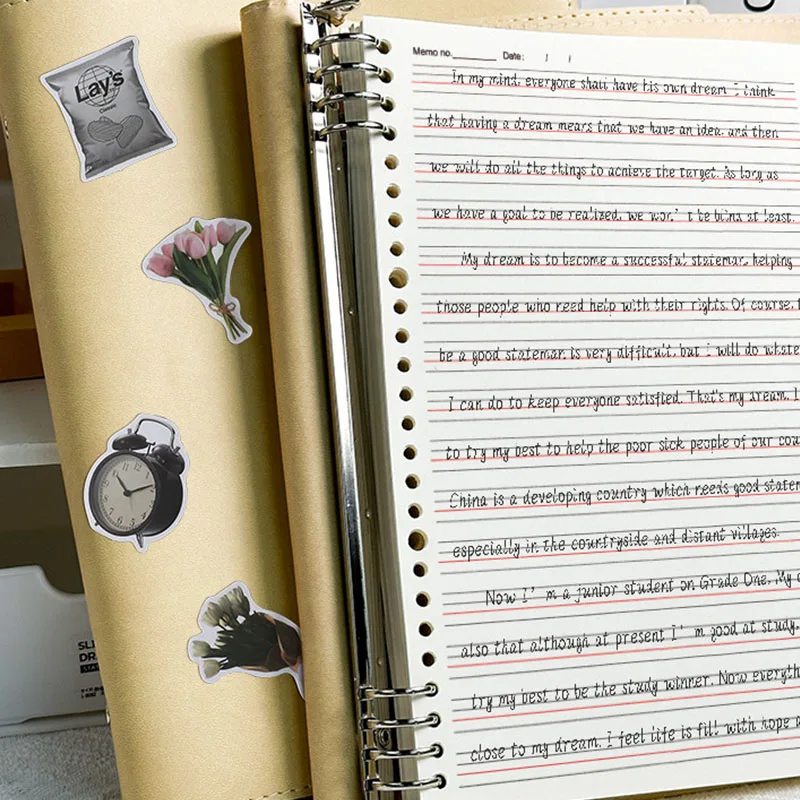 Lay's
Classic
Memo no. Date: / /
In my mind, everyone shall have his own dream I think
that having a dream means that we have an idea, and then
we will do all the things to achieve the target. As long as
we have a goal to be realized, we won't be blind at least.
My dream is to become a successful stateman, helping
those people who need help with their rights. Of course,
be a good stateman is very difficult, but I will do whate
I can do to keep everyone satisfied. That's my dream. I
to try my best to help the poor sick people of our cou
China is a developing country which needs good statem
especially in the countryside and distant villages.
Now I'm a junior student on Grade One. My
also that although at present I'm good at study.
try my best to be the study winner. Now everyth
close to my dream. I feel life is fill with hope a